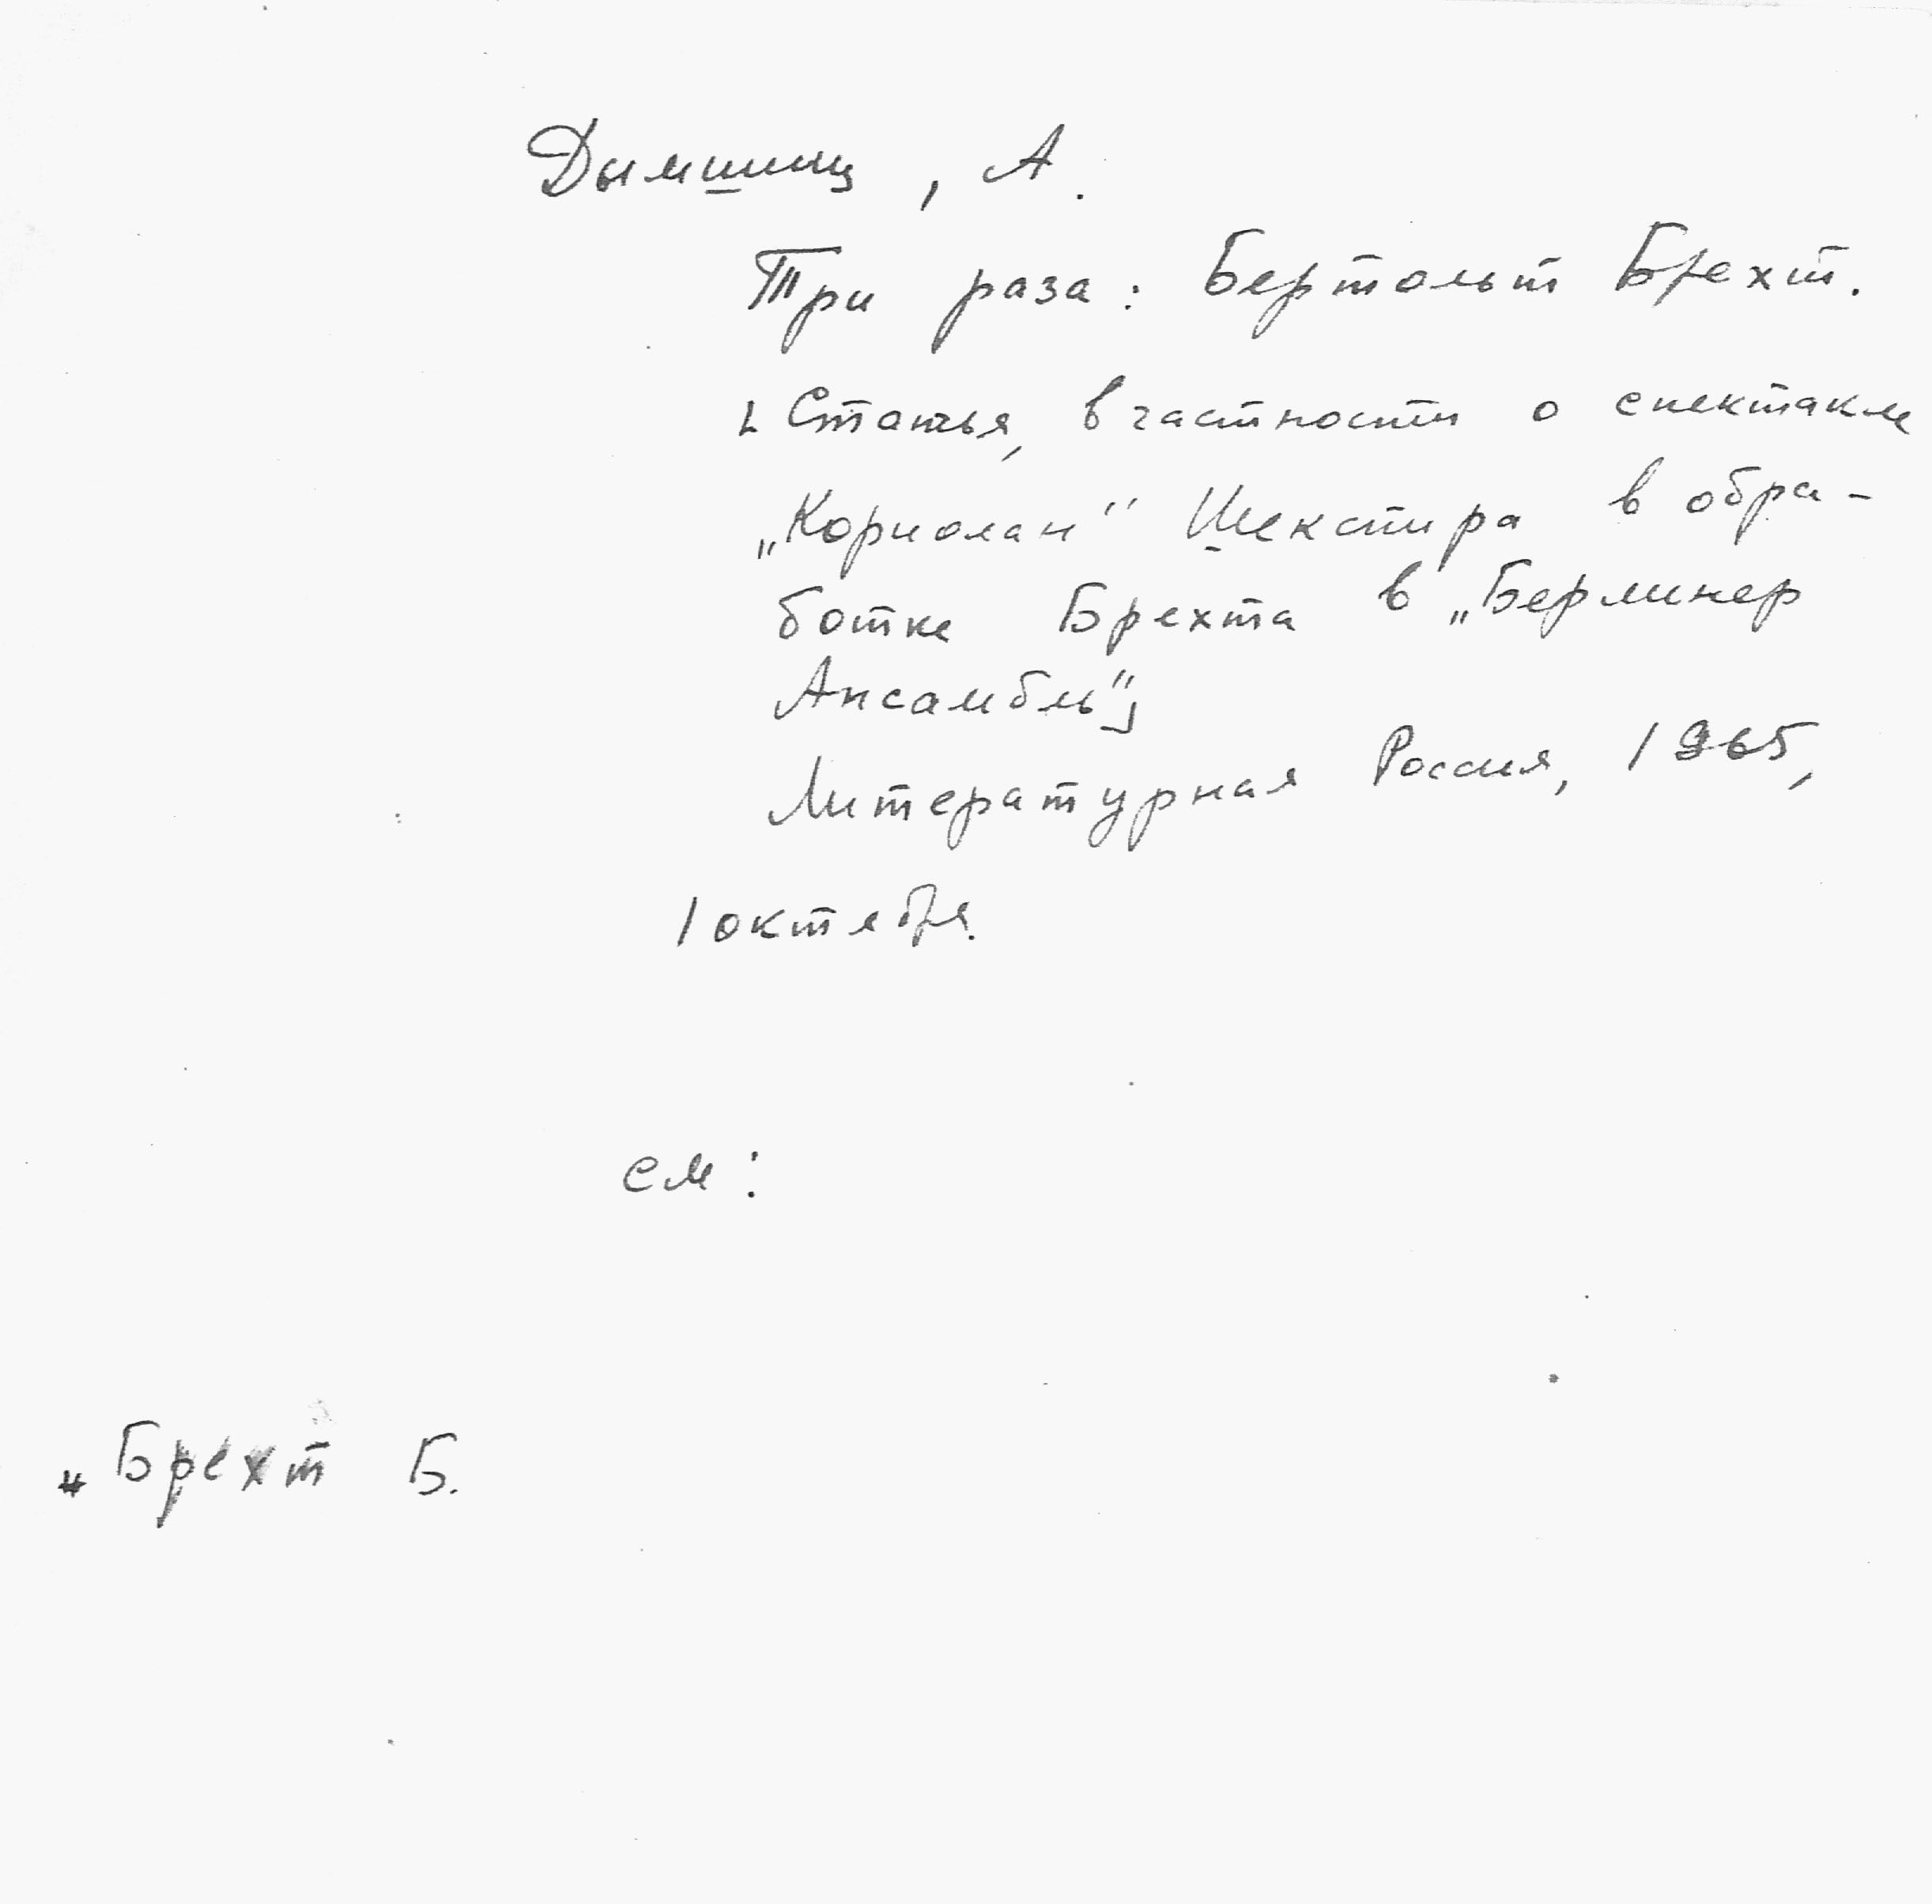 Дымшиц, А.
Три раза: Бертольт Брехт.
[Статья, в частности о спектакле
„Кориолан" Шекспира в обра-
ботке Брехта в „Берлинер
Ансамбль"]
Литературная Россия, 1965,
1 октября.
см:
„Брехт Б.